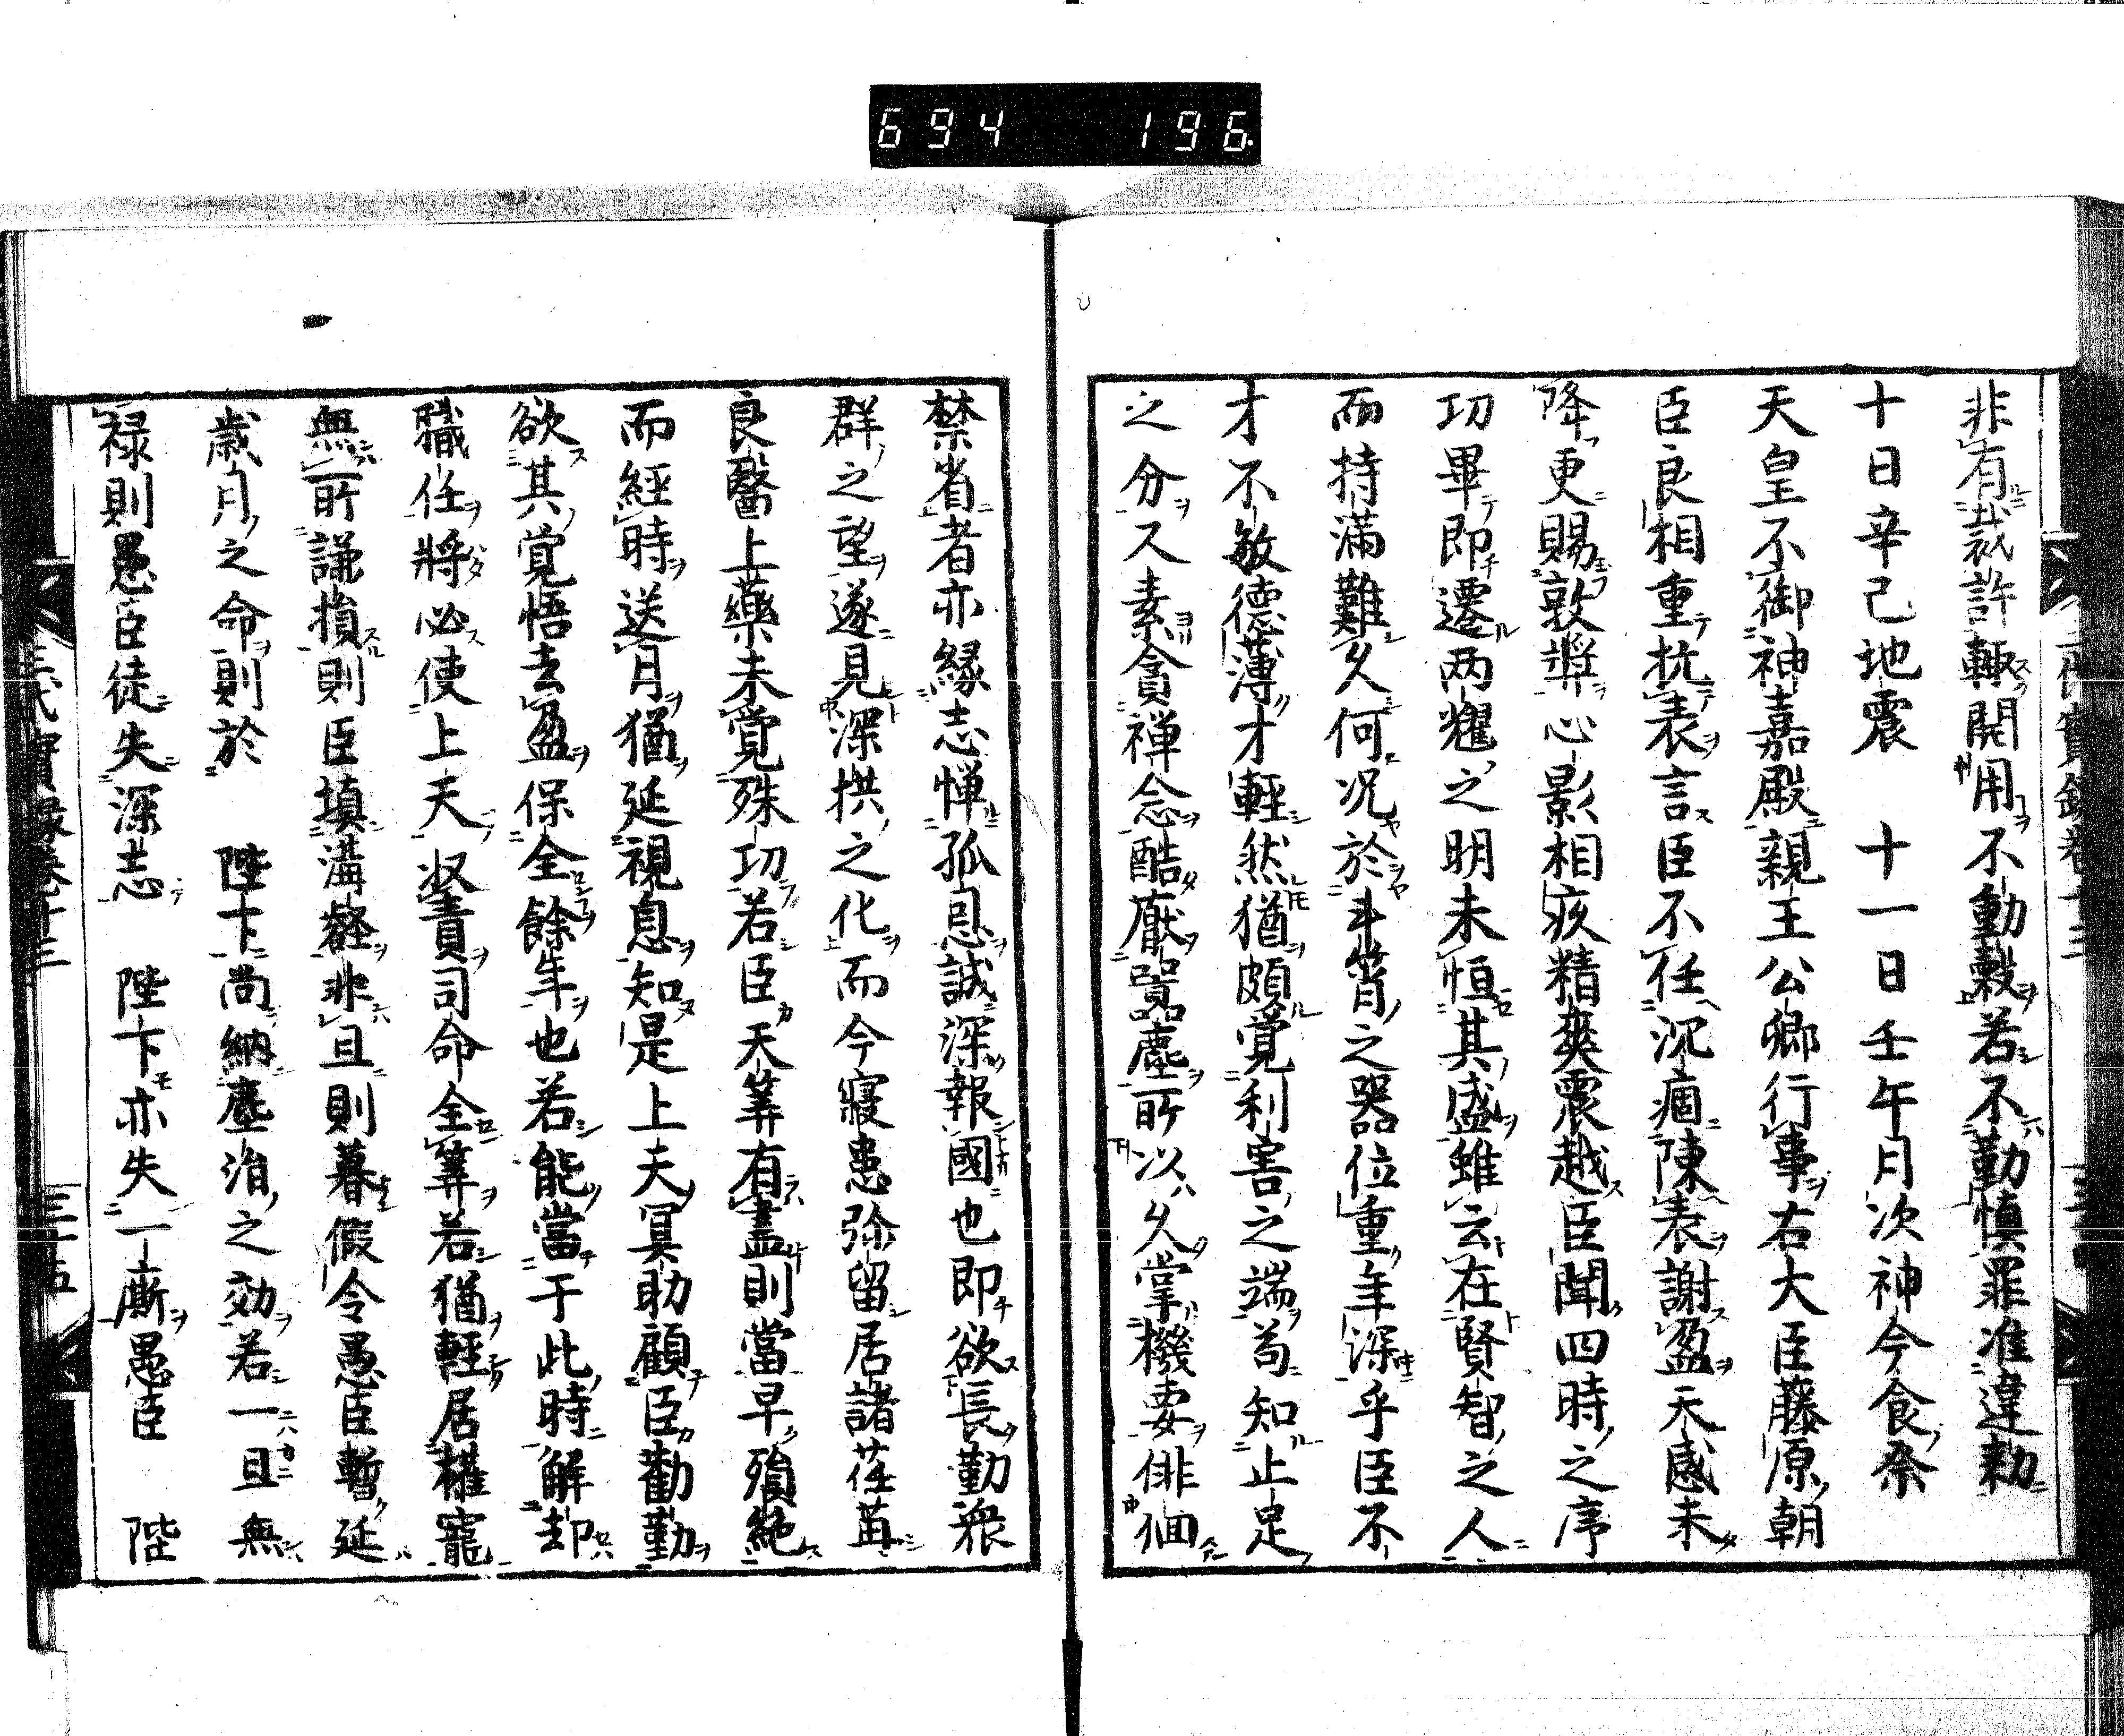 694 196
非有裁許輙開用不動穀若不勤慎罪准違勅
十日辛已地震 十一日壬午月次神今食祭
天皇不御神嘉殿親王公卿行事右大臣藤原朝
臣良相重抗表言臣不任沉痼陳表謝盈天感未
降更賜敦奬心影相疚精爽震越臣聞四時之序
功畢即遷両耀之明未恒其盛雖云在賢智之人
而持滿難久何况於斗筲之器位重年深乎臣不
才不敏德薄才輕然猶頗覚利害之端苟知止足
之分又素貪禅念酷厭囂塵所以久掌機要俳佪
禁省者亦縁志憚孤恩誠深報國也即欲長勤衆
群之望遂見深拱之化而今寢患弥留居諸荏苒
良醫上藥未覚殊功若臣天筭有盡則當早殞絶
而經時送月猶延視息知是上天冥助顧臣勸勤
欲其覚悟去盈保全餘年也若能當于此時解却
職任將必使上天収責司命全筭若猶輕居權寵
無所謙損則臣填溝壑非旦則暮假令愚臣暫延
歳月之命則於 陛下尚納塵涓之効若一旦無
禄則愚臣徒失深志 陛下亦失一廝愚臣 陛
三代實録卷十三 三十五